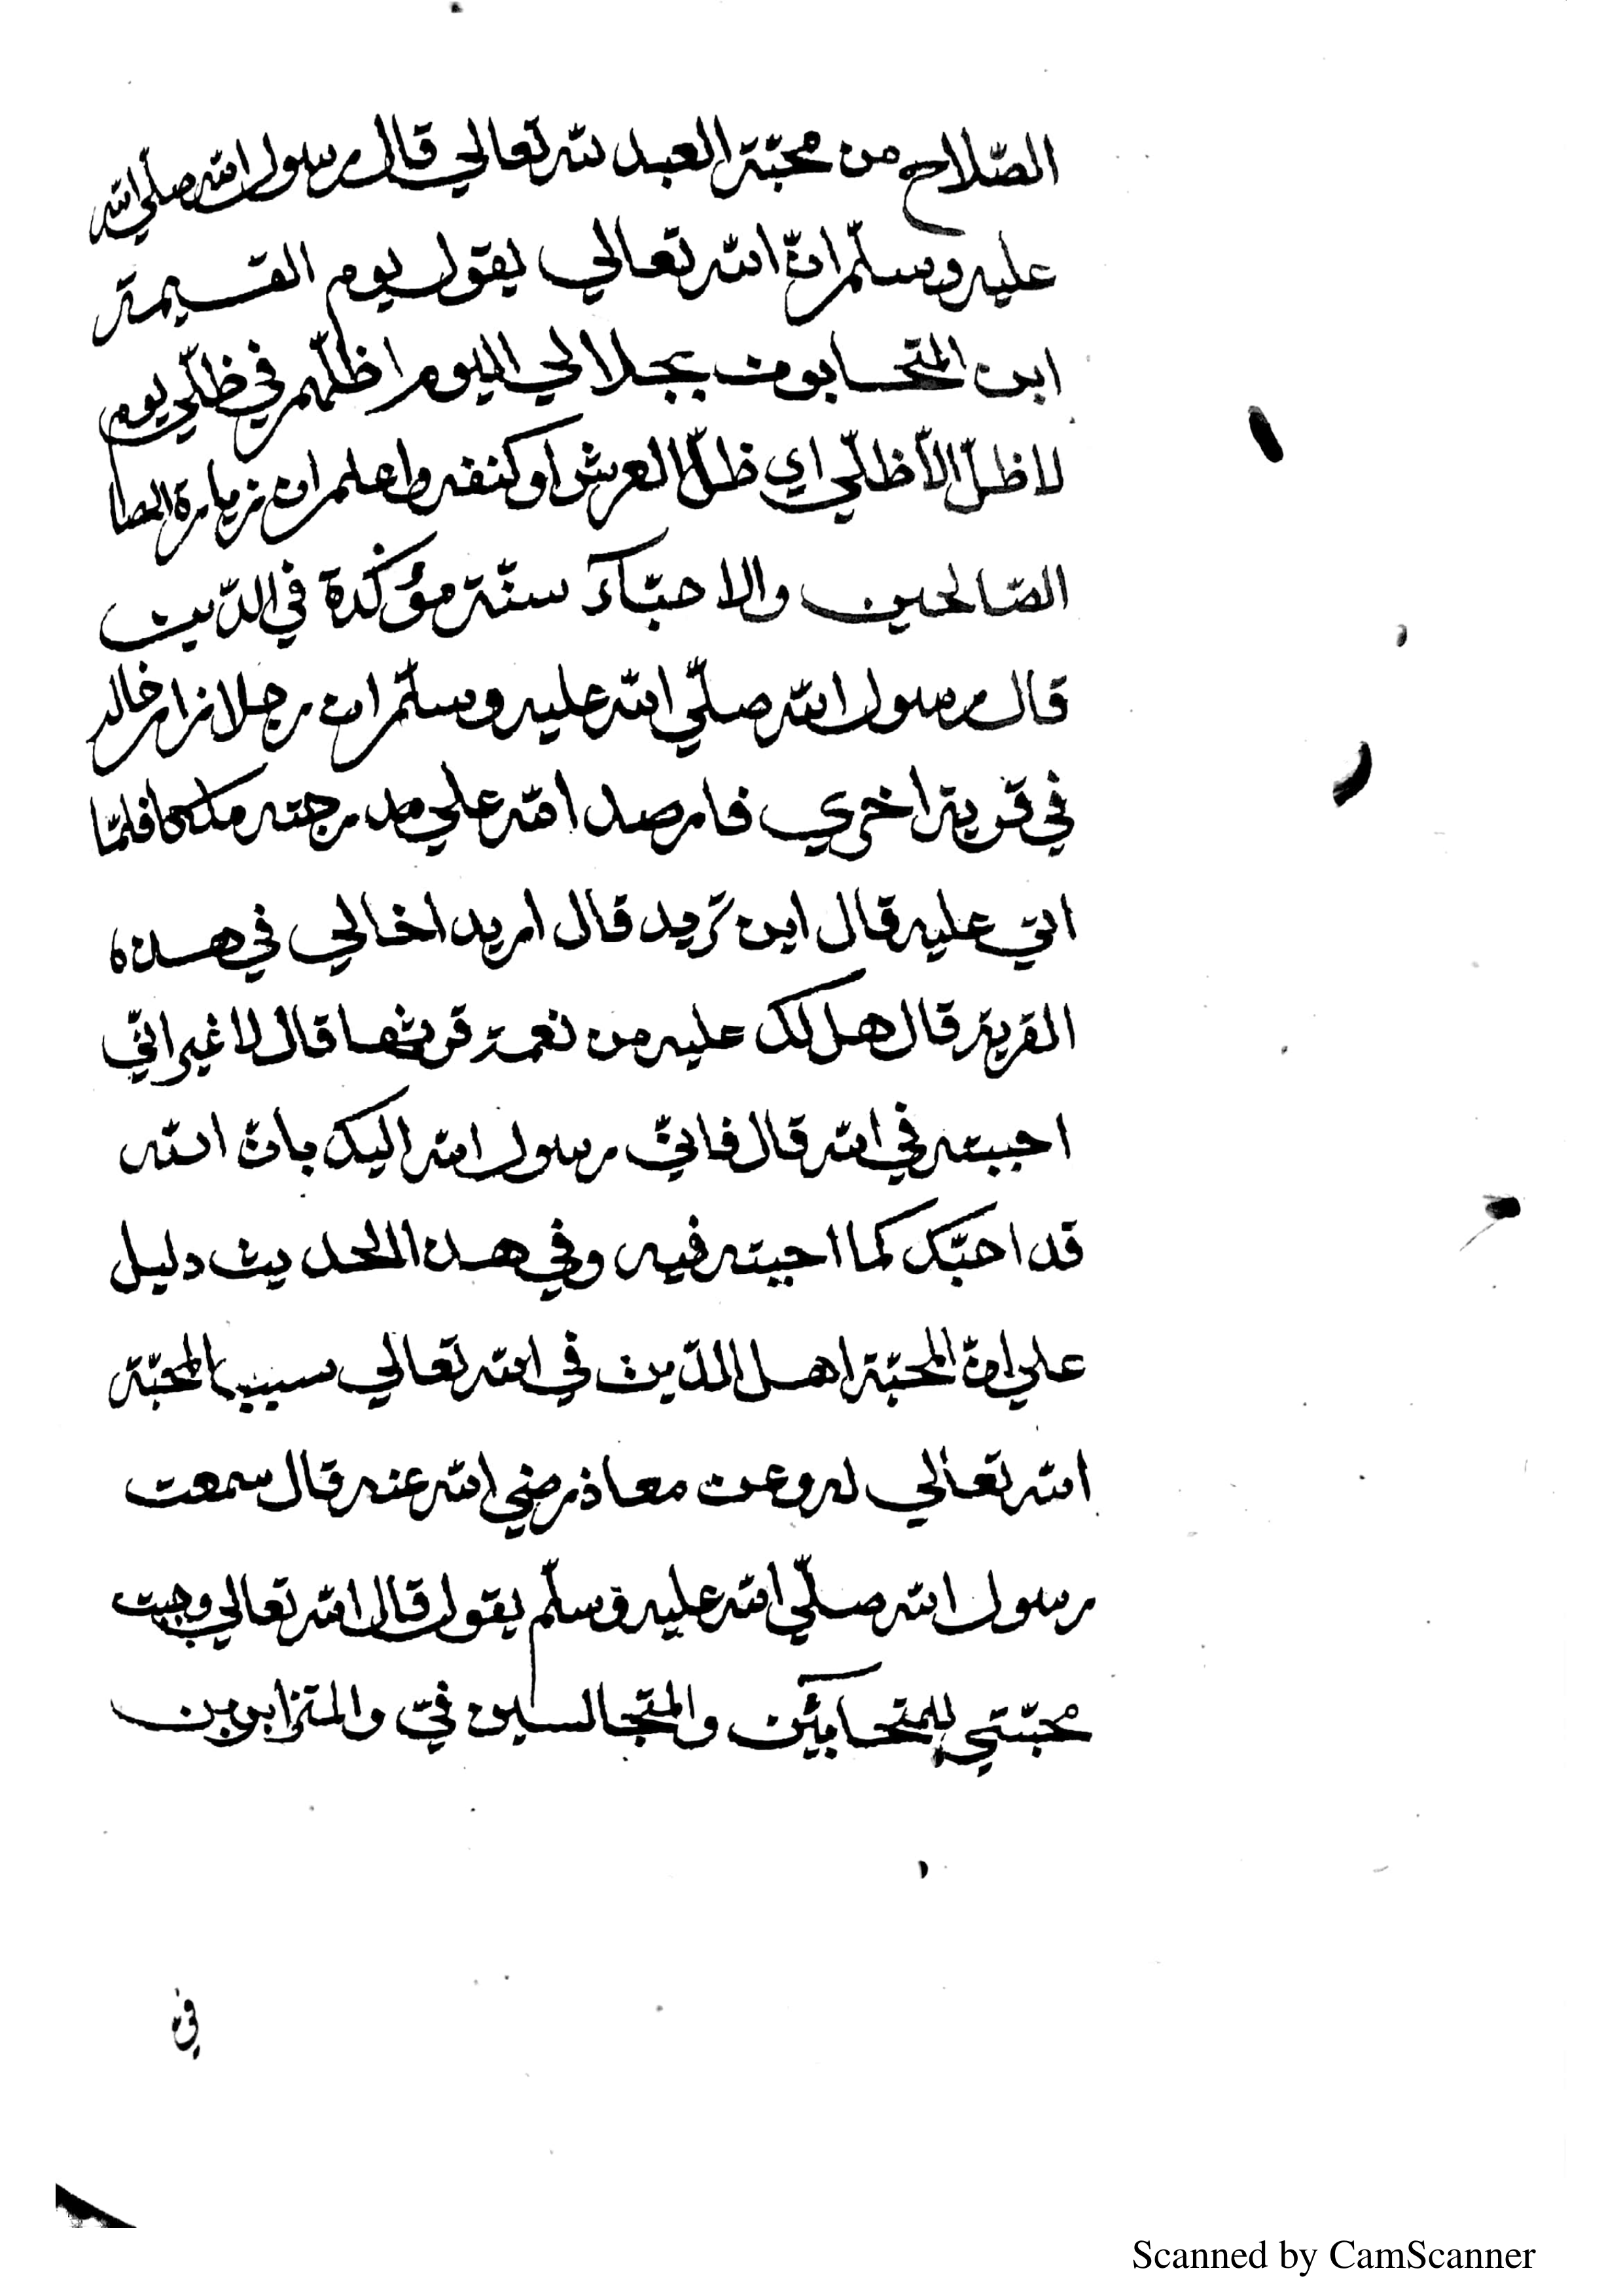 الصّلاح من محبّة العبد لله تعالي قال رسول الله صلي الله
عليه وسلّم انّ الله تعالي يقول يوم القيمة
اين المتحابون بجلالي اليوم اظلّهم في ظلّي يوم
لا ظلّ الاّ ظلّي اي ظلّ العرش او كنفه واعلم ان زيارة الصا
الصّالحين والاحبّاء سنّة مؤكّدة في الدّين
قال رسول الله صلّي الله عليه وسلّم ان رجلا زار خاله
في قرية اخري فارصد الله علي مدرجته ملكا فلمّا
اتي عليه قال اين تريد قال اريد اخا لي في هذه
القرية قال هل لك عليه من نعمة قال لا غير انّي
احببته في الله قال فانّي رسول الله اليك بانّ الله
قد احبّك كما احببته فيه وفي هذا الحديث دليل
علي انّ المحبّة اهل الدّين في الله تعالي سبب المحبّة
الله تعالي له وعن معاذ رضي الله عنه قال سمعت
رسول الله صلّي الله عليه وسلّم يقول قال الله تعالي وجبت
محبّتي للمتحابّين والمتجالسين فيّ والمتزاورين
فيّ
Scanned by CamScanner